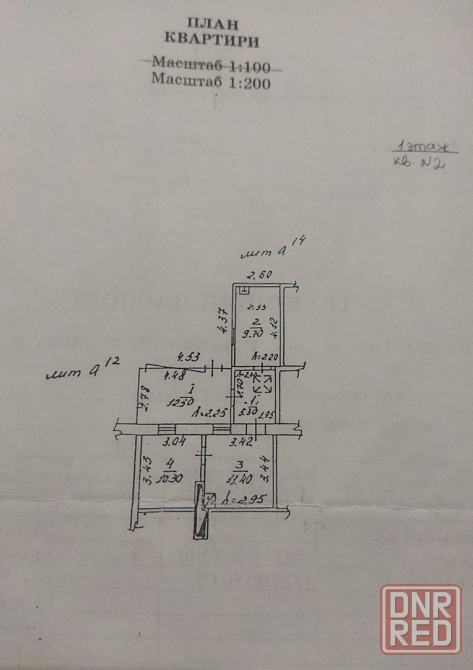 ПЛАН
КВАРТИРИ
Масштаб 1:100
Масштаб 1:200
1 этаж
кв. N2
лит А 14
2.60
2.35
4.37
2
9.70
4.12
h=2.20
лит а 12
4.53
4.48
2.78
I
12.50
h=2.25
1.95
3.04
3.42
3.45
4
10.30
3
11.40
3.44
h=2.95
DNR
RED